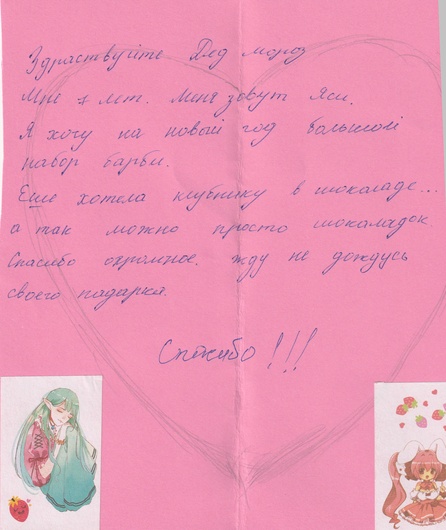 Здраствуйте Дед мороз
Мне 7 лет. Меня зовут Яси.
Я хочу на новый год большой
набор барби.
Еще хотела клубнику в шоколаде...
а так можно просто шоколадок
Спасибо огромное. жду не дождусь
своего падарка.
Спасибо!!!